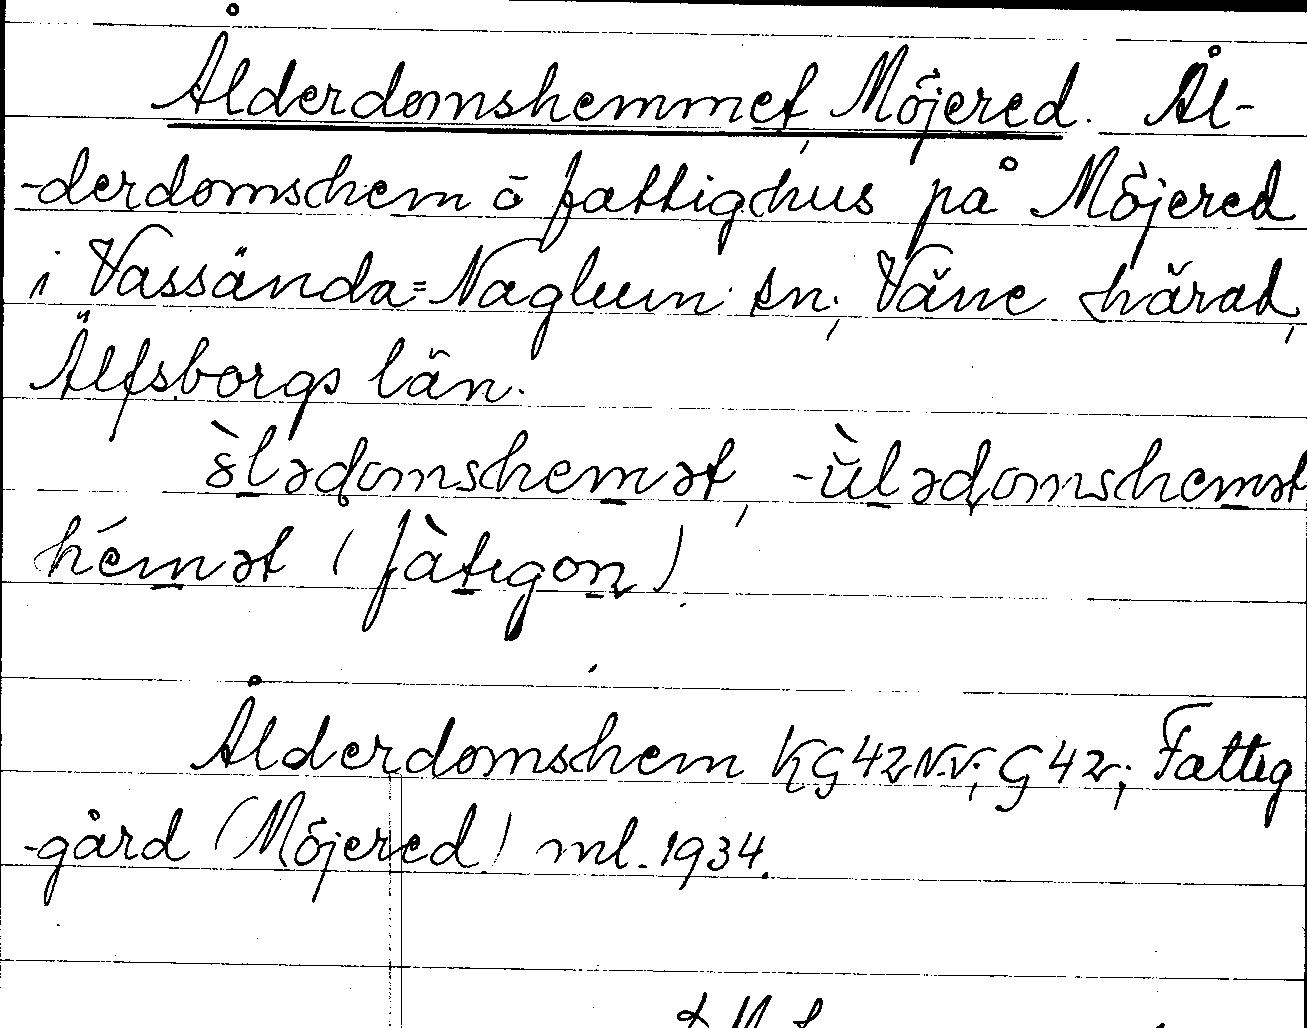 Ålderdomshemmet, Möjered. Ål-
-derdomshem o fattighus på Möjered
i Vassända=Naglum sn; Väne härad,
Älfsborgs län.
ə̀lədomshemət, -ùlədomshemət
hémət (fàtıgon).
Ålderdomshem KG42NV; G42; Fattig
-gård (Möjered) ml. 1934.